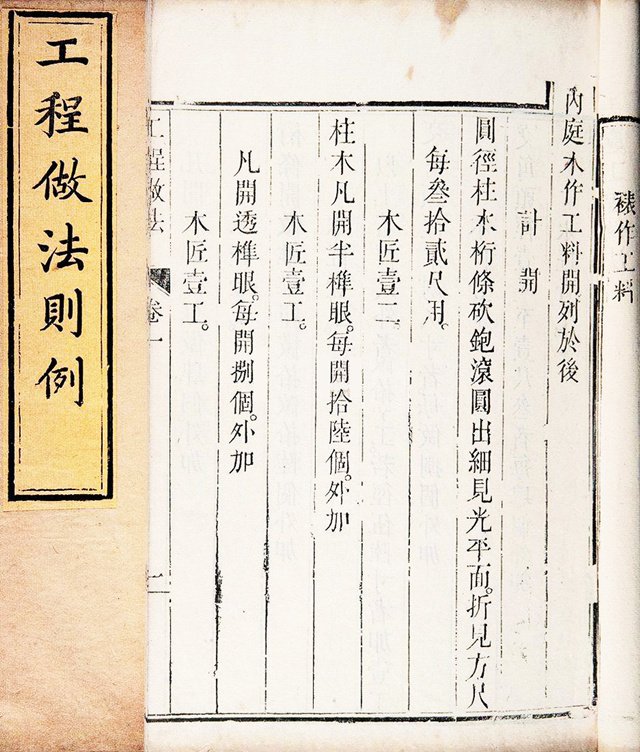 工程做法則例
裱作工料
內庭木作工料開列於後
計開
圓徑柱木桁條砍鉋滾圓出細見光平面。折見方尺
每叁拾貳尺用。
木匠壹工
柱木凡開半榫眼。每開拾陸個。外加
木匠壹工。
凡開透榫眼。每開捌個。外加
木匠壹工。
工程做法 卷一